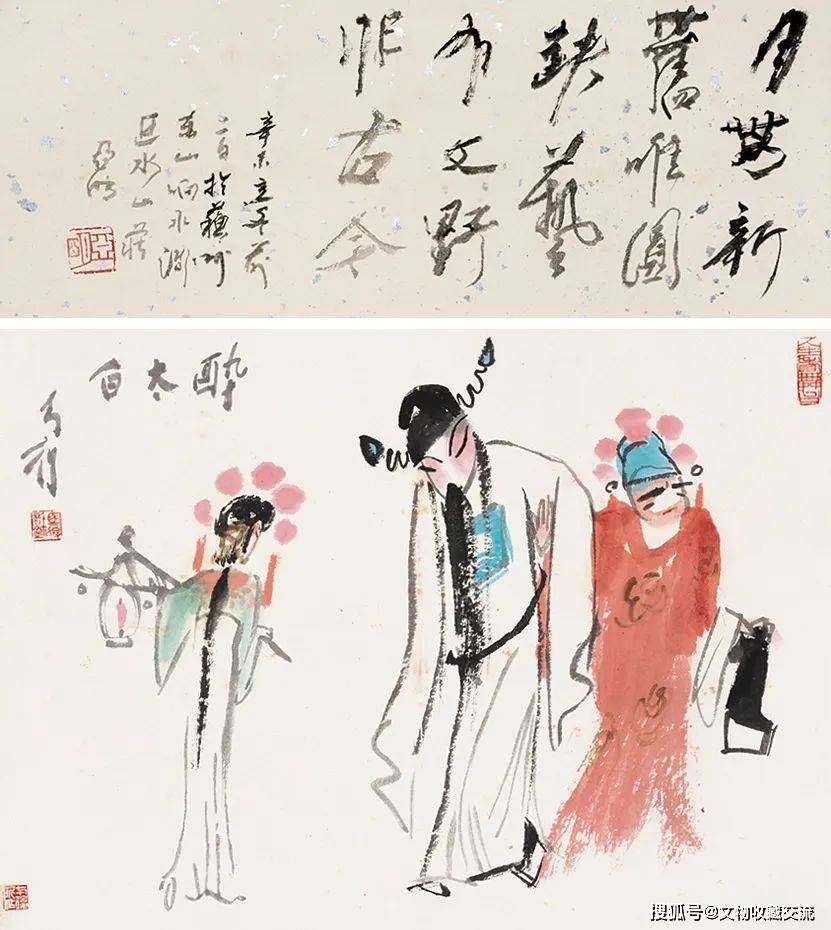 月無新
舊唯圓
缺藝
有文野
非古今
辛未立冬前
二日於蘇州
東山响水澗
近水山莊
亞明
亞明
醉太白
马得
搜狐号@文物收藏交流